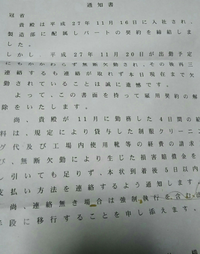 通知書
冠省
貴殿は平成27年11月16日に入社され、
製造部に配属しパートの契約を締結しま
した。
しかし、平成27年11月20日が出勤予定
にもかかわらず無断欠勤され、その後再三
連絡するも連絡が取れず本日現在まで欠
勤されていることは誠に遺憾です。
よって、この書面を持って雇用契約の解
除をいたします。
尚、貴殿が11月に勤務した4日間の給
料は、規定により貸与した制服クリーニン
グ代及び工場内使用靴等の経費の請求
、無断欠勤により生じた損害賠償金を
引いても足りず、本状到着後5日以内
支払い方法を連絡するよう追加します。
尚、連絡無き場合は強制執行を含む法
手段に移行することを申し添えます。